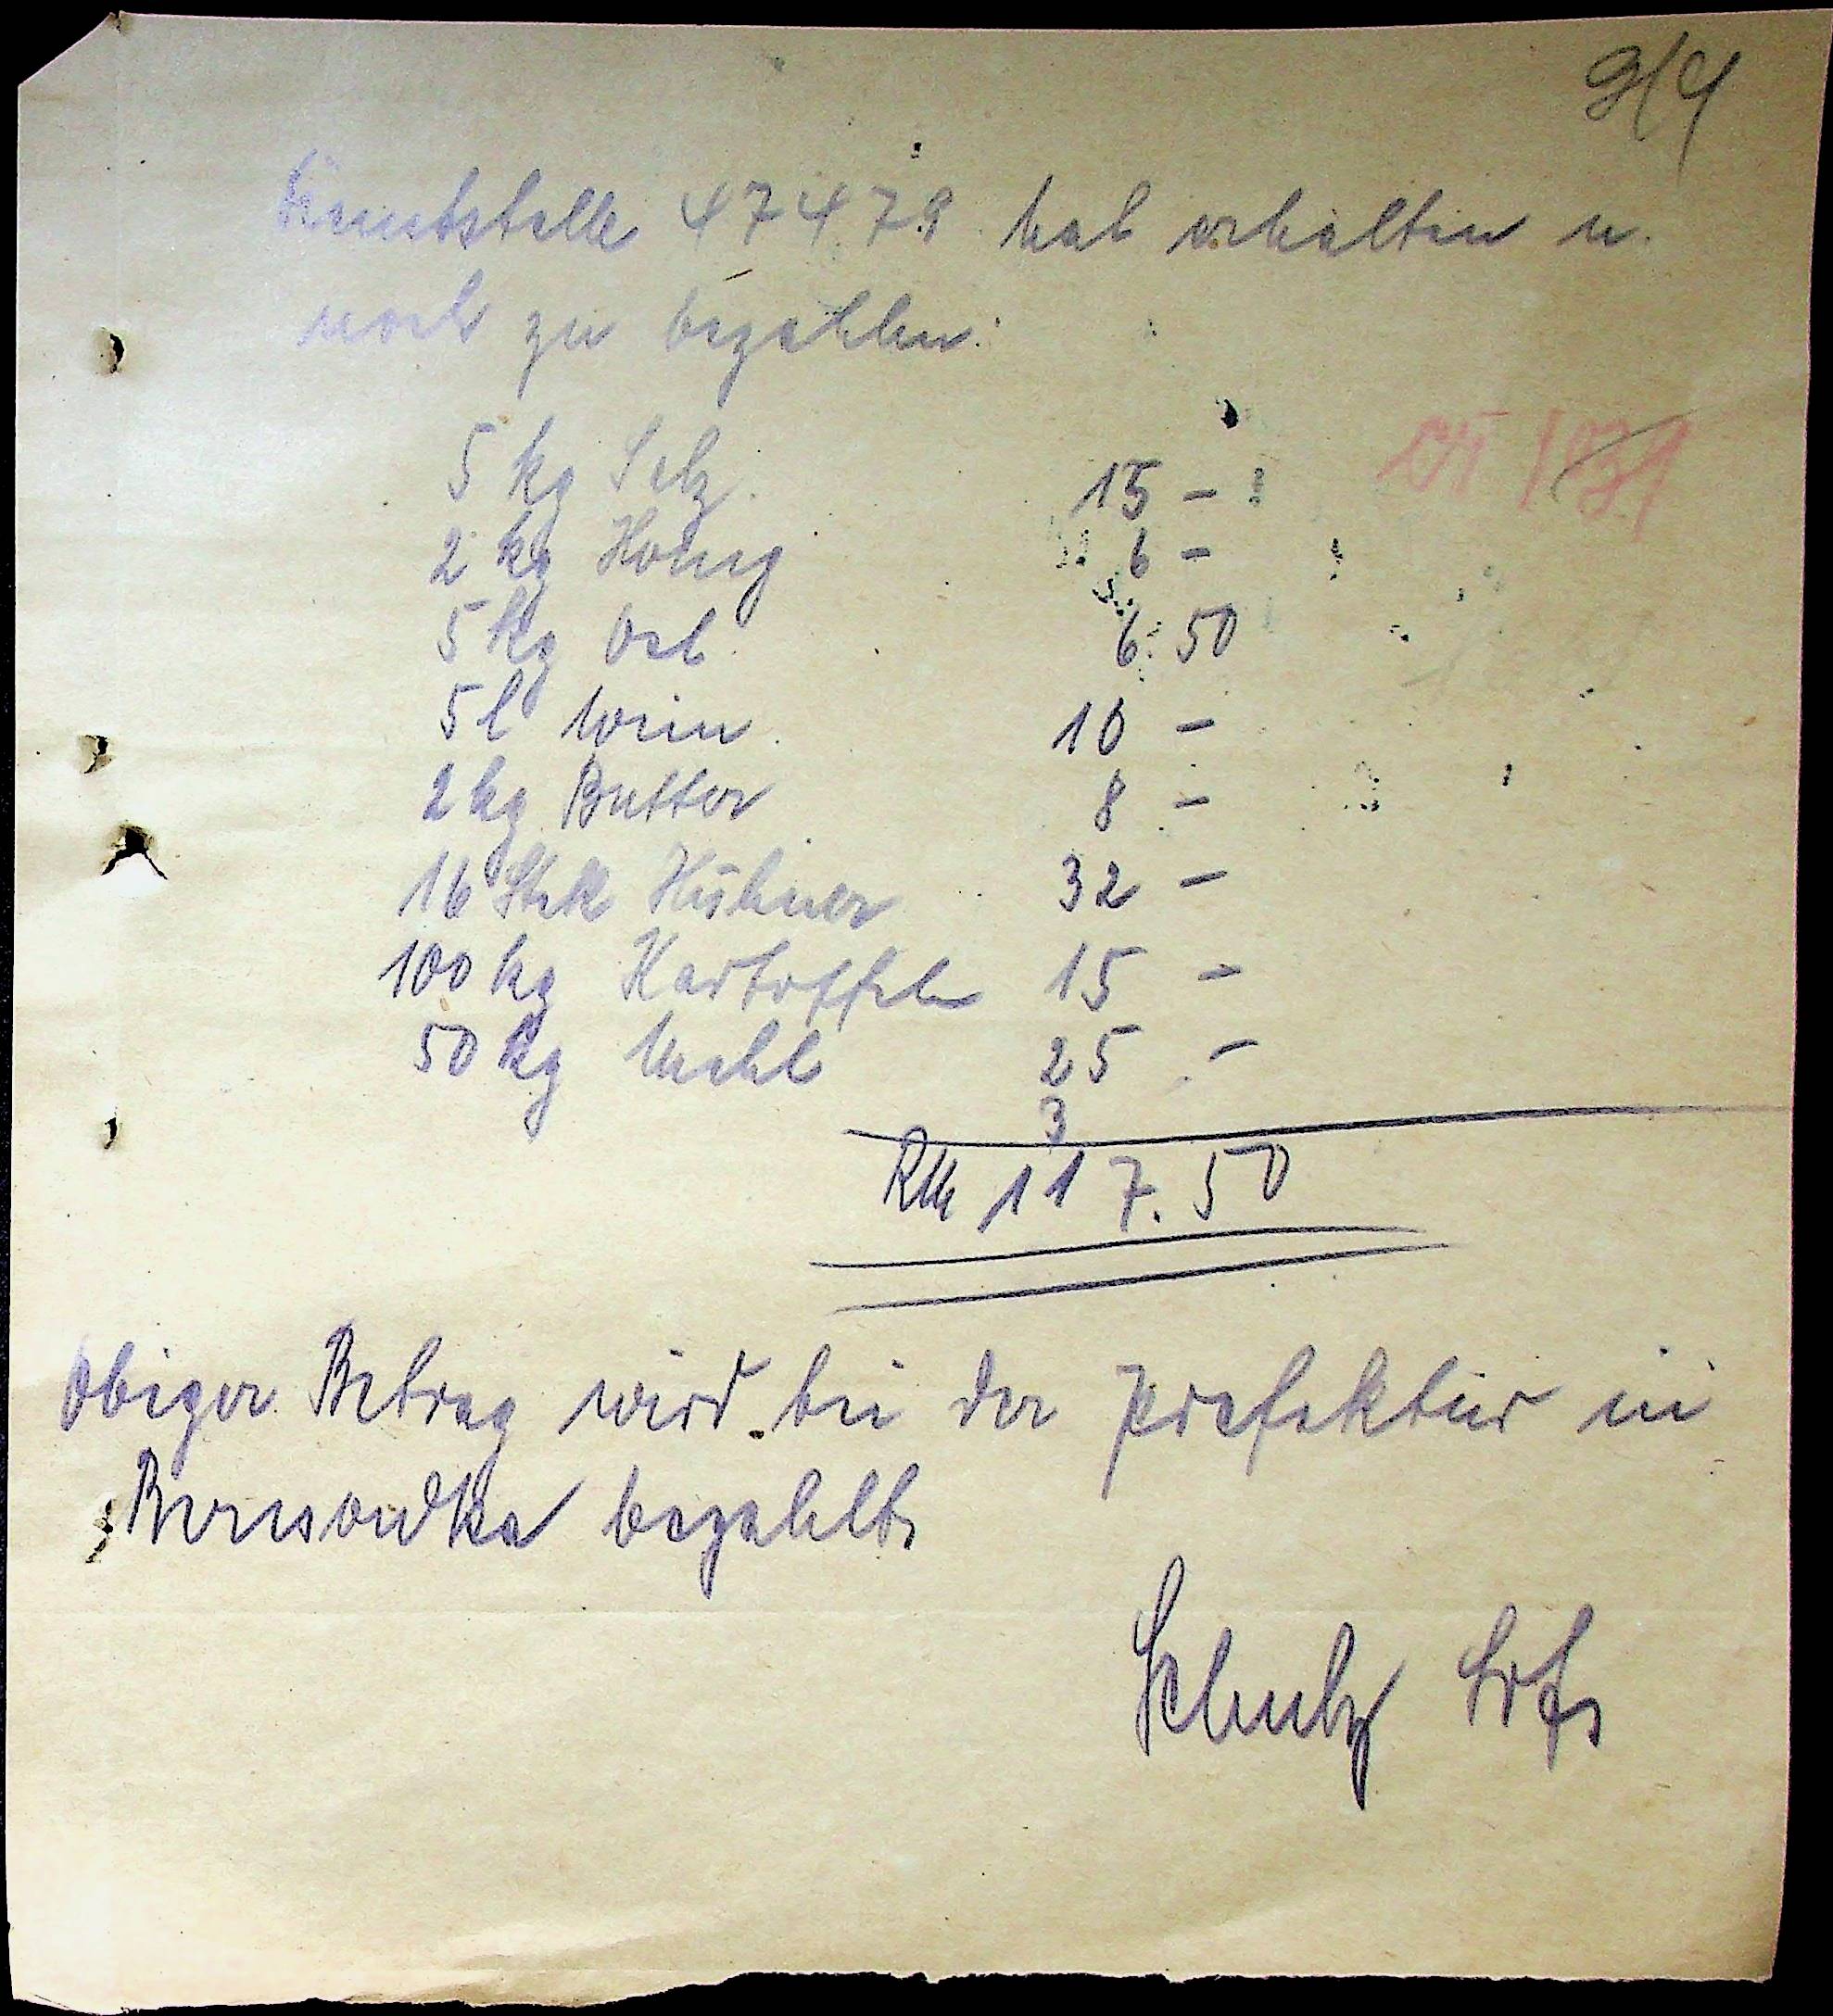 9/4
Dienststelle 47479 hat erhalten u.
noch zu bezahlen:
5 kg Salz 15 -
2 kg Honig 6 -
5 kg 6.50
5 l Wein 10 -
2 kg Butter 8 -
16 Stck Hühner 32 -
100 kg Kartoffeln 15 -
50 kg Mehl 25 -
3
RM 117.50
Obiger Betrag wird bei der Prefektur in
Beresowka bezahlt.
Schulz